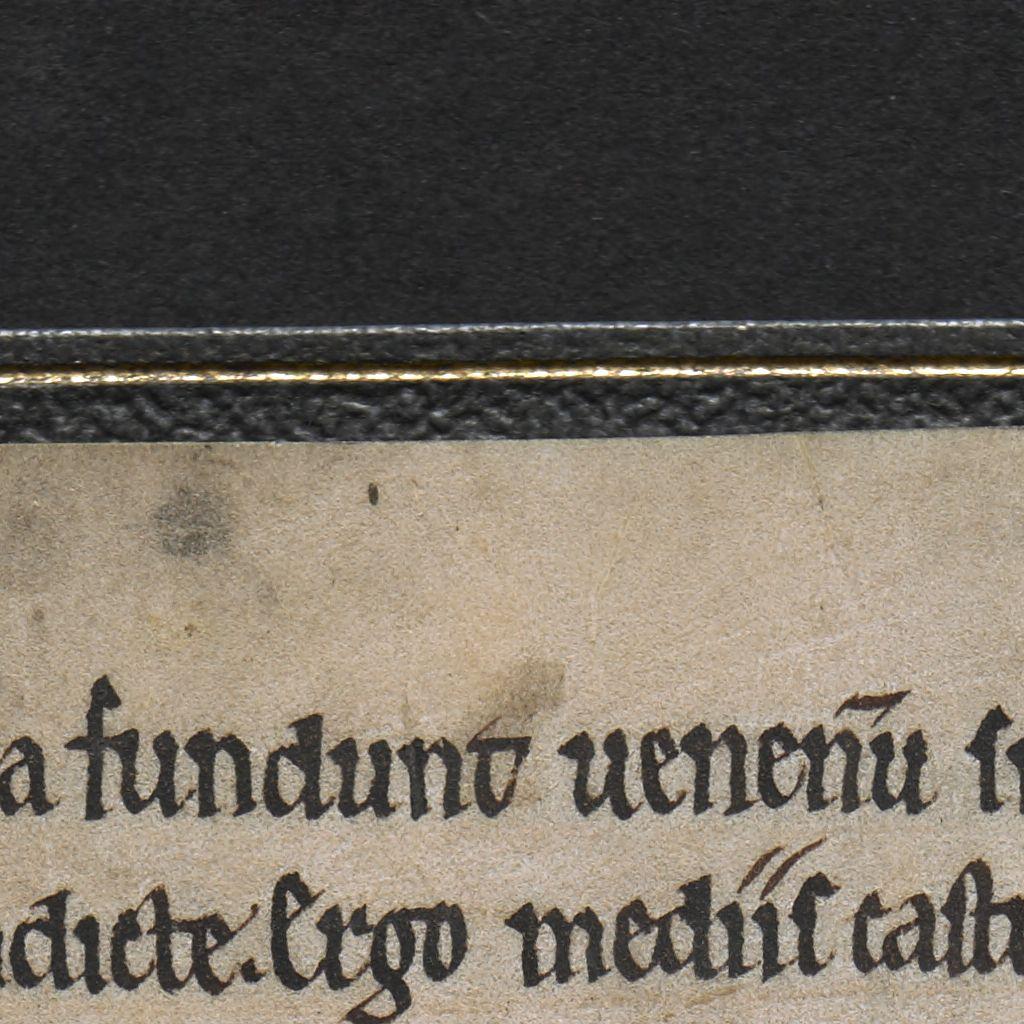 a fundunt uenenū
dicte. Ergo mediis